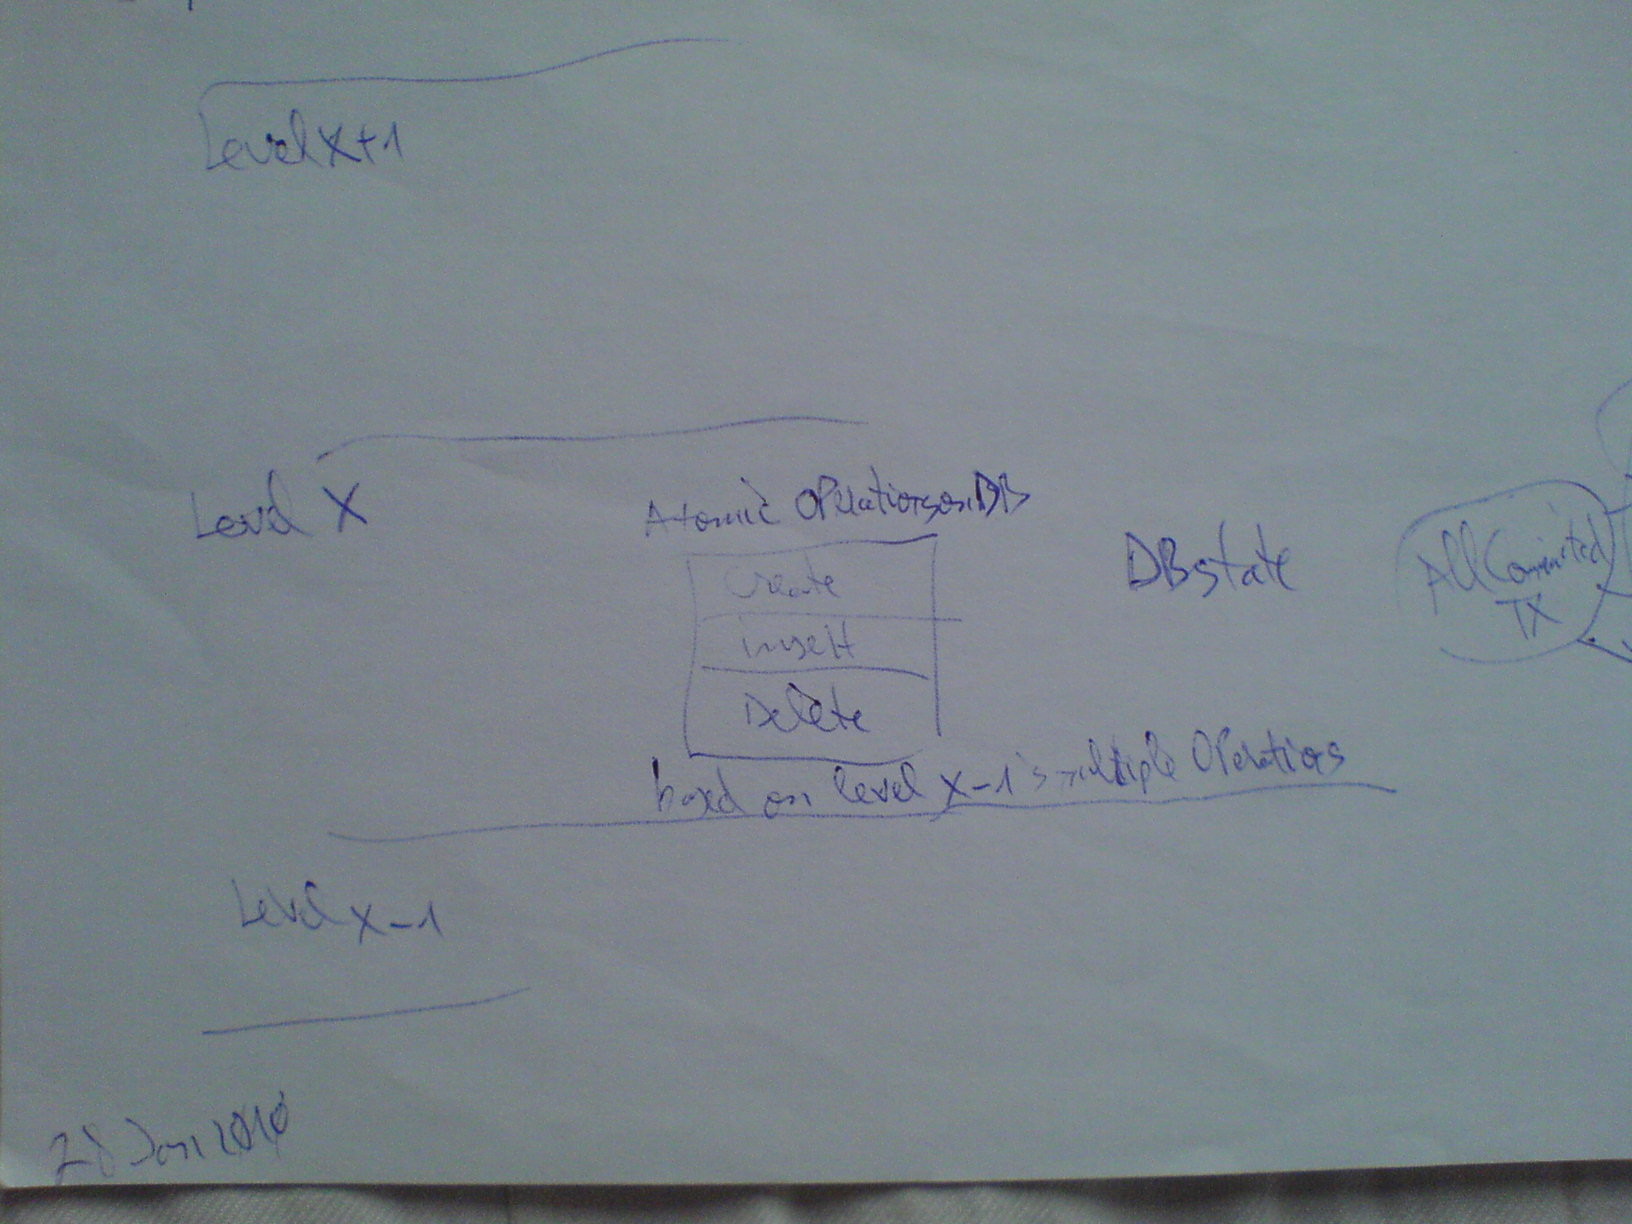 Level X+1
Level X
Atomic Operations on DB
Create
insert
Delete
based on level X-1's multiple Operations
DBstate
All Committed
TX
Level X-1
28 Jan 2010